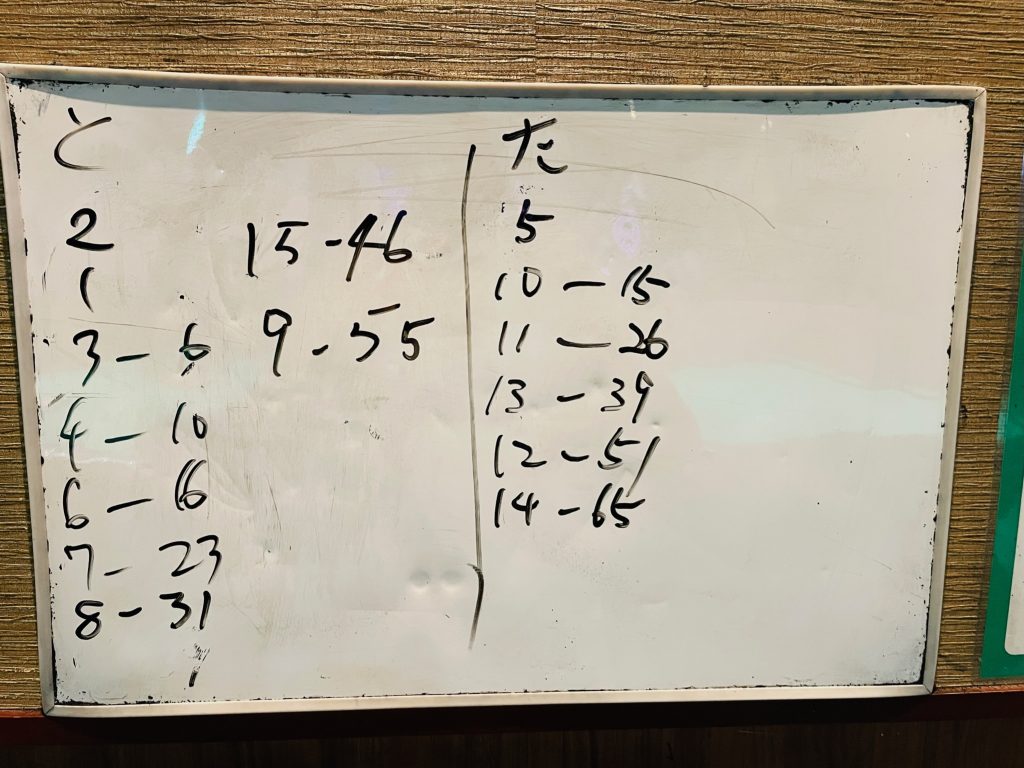 と
2
1
3 - 6
4 - 10
6 - 16
7 - 23
8 - 31
15 - 46
9 - 55
た
5
10 - 15
11 - 26
13 - 39
12 - 51
14 - 65